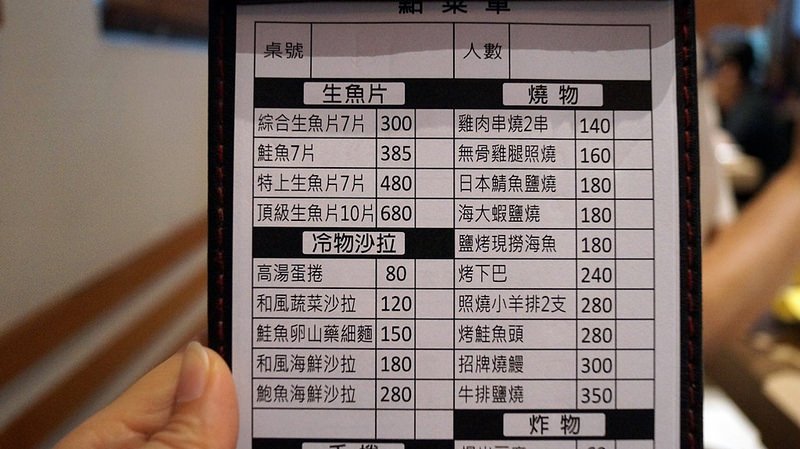 點菜單
桌號
人數
生魚片
綜合生魚片7片 300
鮭魚7片 385
特上生魚片7片 480
頂級生魚片10片 680
冷物沙拉
高湯蛋捲 80
和風蔬菜沙拉 120
鮭魚卵山藥細麵 150
和風海鮮沙拉 180
鮑魚海鮮沙拉 280
燒物
雞肉串燒2串 140
無骨雞腿照燒 160
日本鯖魚鹽燒 180
海大蝦鹽燒 180
鹽烤現撈海魚 180
烤下巴 240
照燒小羊排2支 280
烤鮭魚頭 280
招牌燒鰻 300
牛排鹽燒 350
炸物